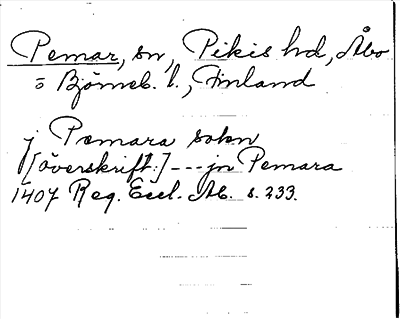 Pemar, sn, Pikis hd, Åbo
o Björneb. l., Finland
j Pæmara sokn
[överskrift:] --- jn Pemara
1407 Reg. Eccl. Ab. s. 233.